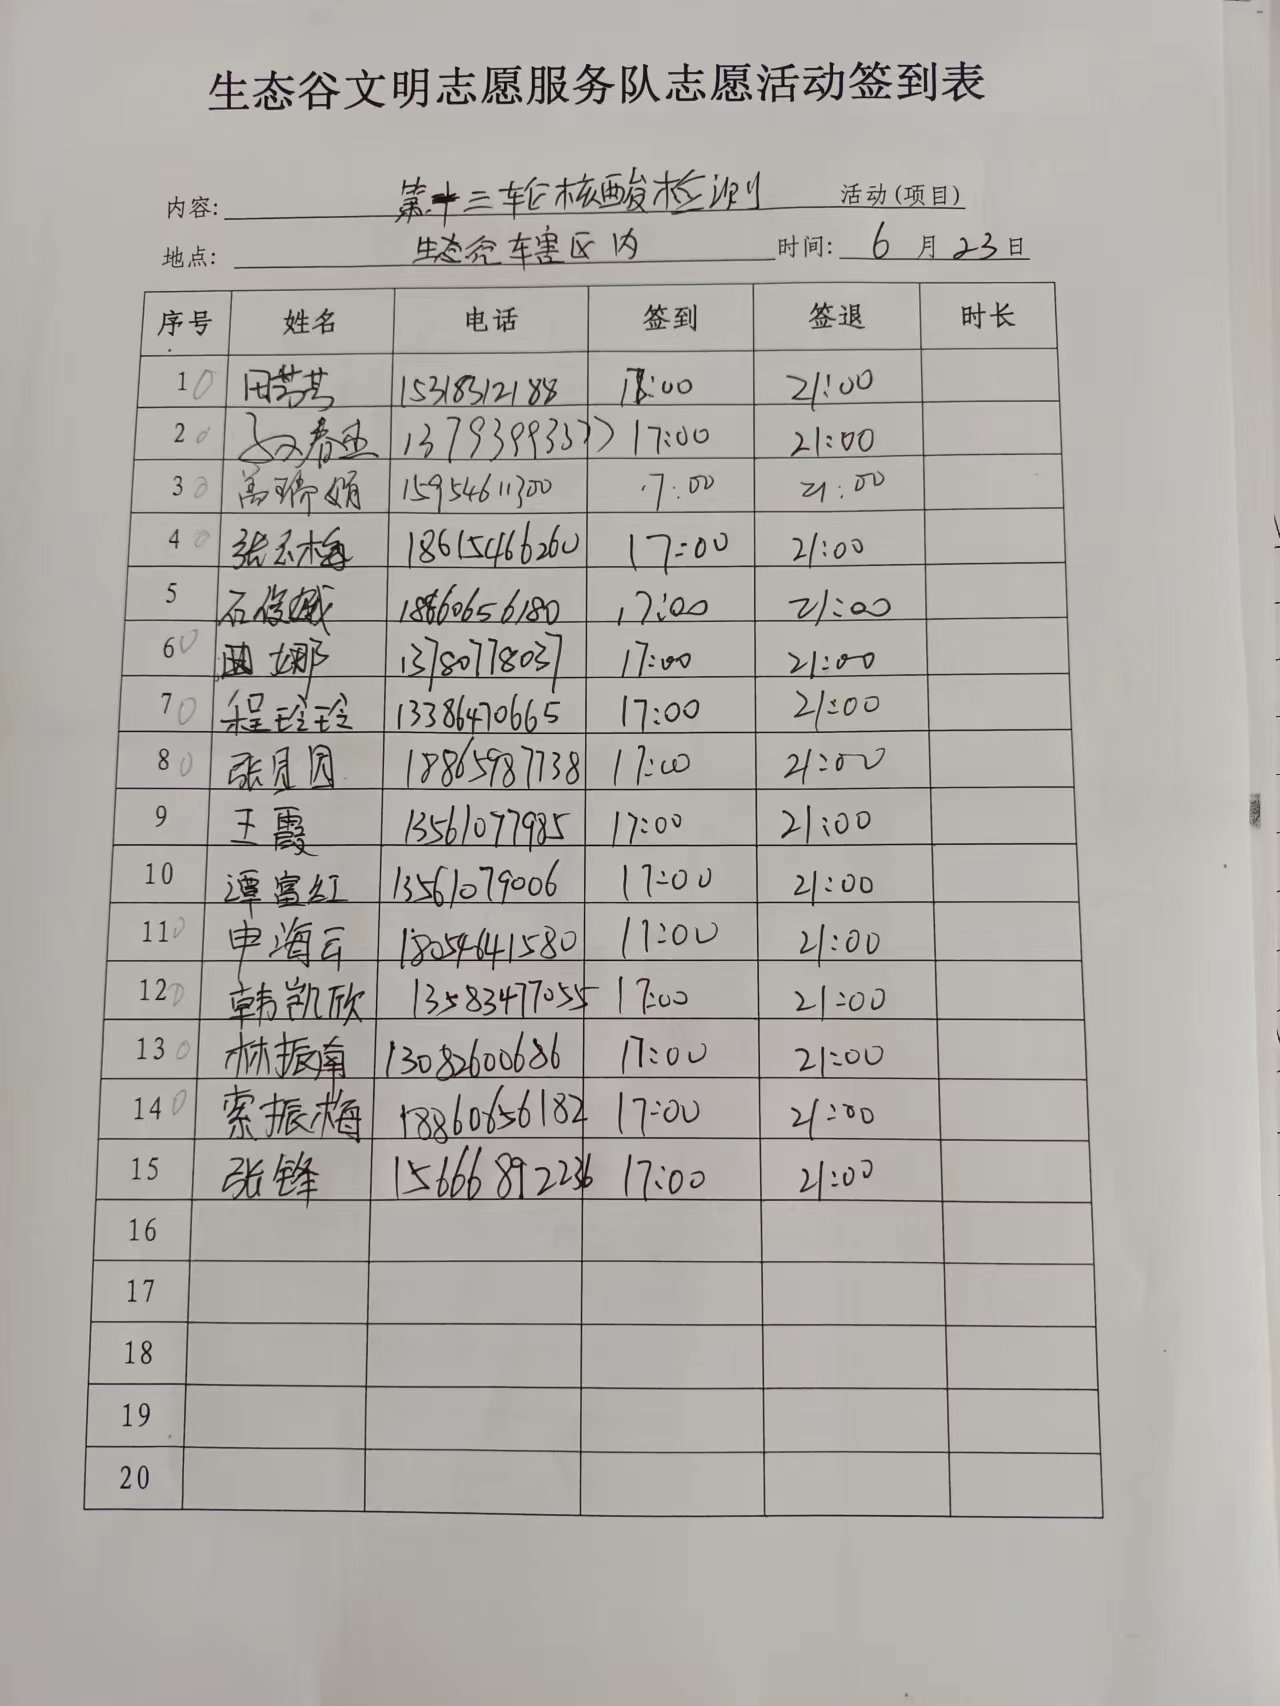 生态谷文明志愿服务队志愿活动签到表
内容: 第十三轮核酸检测 活动(项目)
地点: 生态谷辖区内 时间: 6 月 23 日
序号 姓名 电话 签到 签退 时长
1 15318312188 17:00 21:00
2 17:00 21:00
3 高瑞娟 15954611300 17:00 21:00
4 张玉梅 18615466260 17:00 21:00
5 石俊娥 18860656180 17:00 21:00
6 曲娜 13780778037 17:00 21:00
7 程玲玲 13386470665 17:00 21:00
8 18865987738 17:00 21:00
9 王霞 13561077985 17:00 21:00
10 谭富红 13561079006 17:00 21:00
11 申海云 18054641580 17:00 21:00
12 韩凯欣 13583477055 17:00 21:00
13 林振南 13082600686 17:00 21:00
14 索振梅 18860656182 17:00 21:00
15 张锋 15666892236 17:00 21:00
16
17
18
19
20